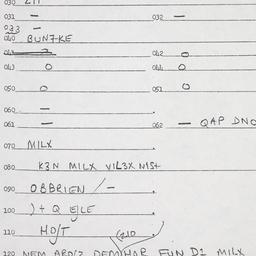 030 211
031 — 032 —
033 —
040 BUNTKE
041 042 0
043 0 044 0
050 0 051 0
060 —
061 — 062 — QAP DNO
070 MILX
080 K3N MILX VIL3X NIS+
090 OBBRIEN /-
100 )+ Q E/LE
110 HO/T (210
120 NEM ARO/2 DEM HAR FUN D1 MILX